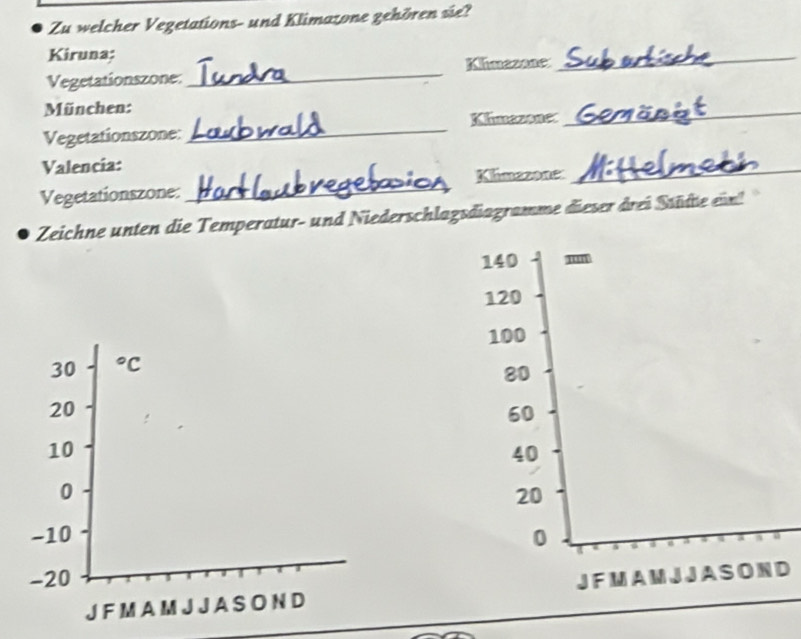 ● Zu welcher Vegetations- und Klimazone gehören sie?
Kiruna:
Vegetationszone: Tundra Klimazone: Subartische
München:
Vegetationszone: Laubwald Klimazone: Gemäßigt
Valencia:
Vegetationszone: Hartlaubvegebasion Klimazone:
● Zeichne unten die Temperatur- und Niederschlagsdiagramme dieser drei Städte ein!
140 mm
120
100
80
60
40
20
0
J F M A M J J A S O N D
30 °C
20
10
0
-10
-20
J F M A M J J A S O N D